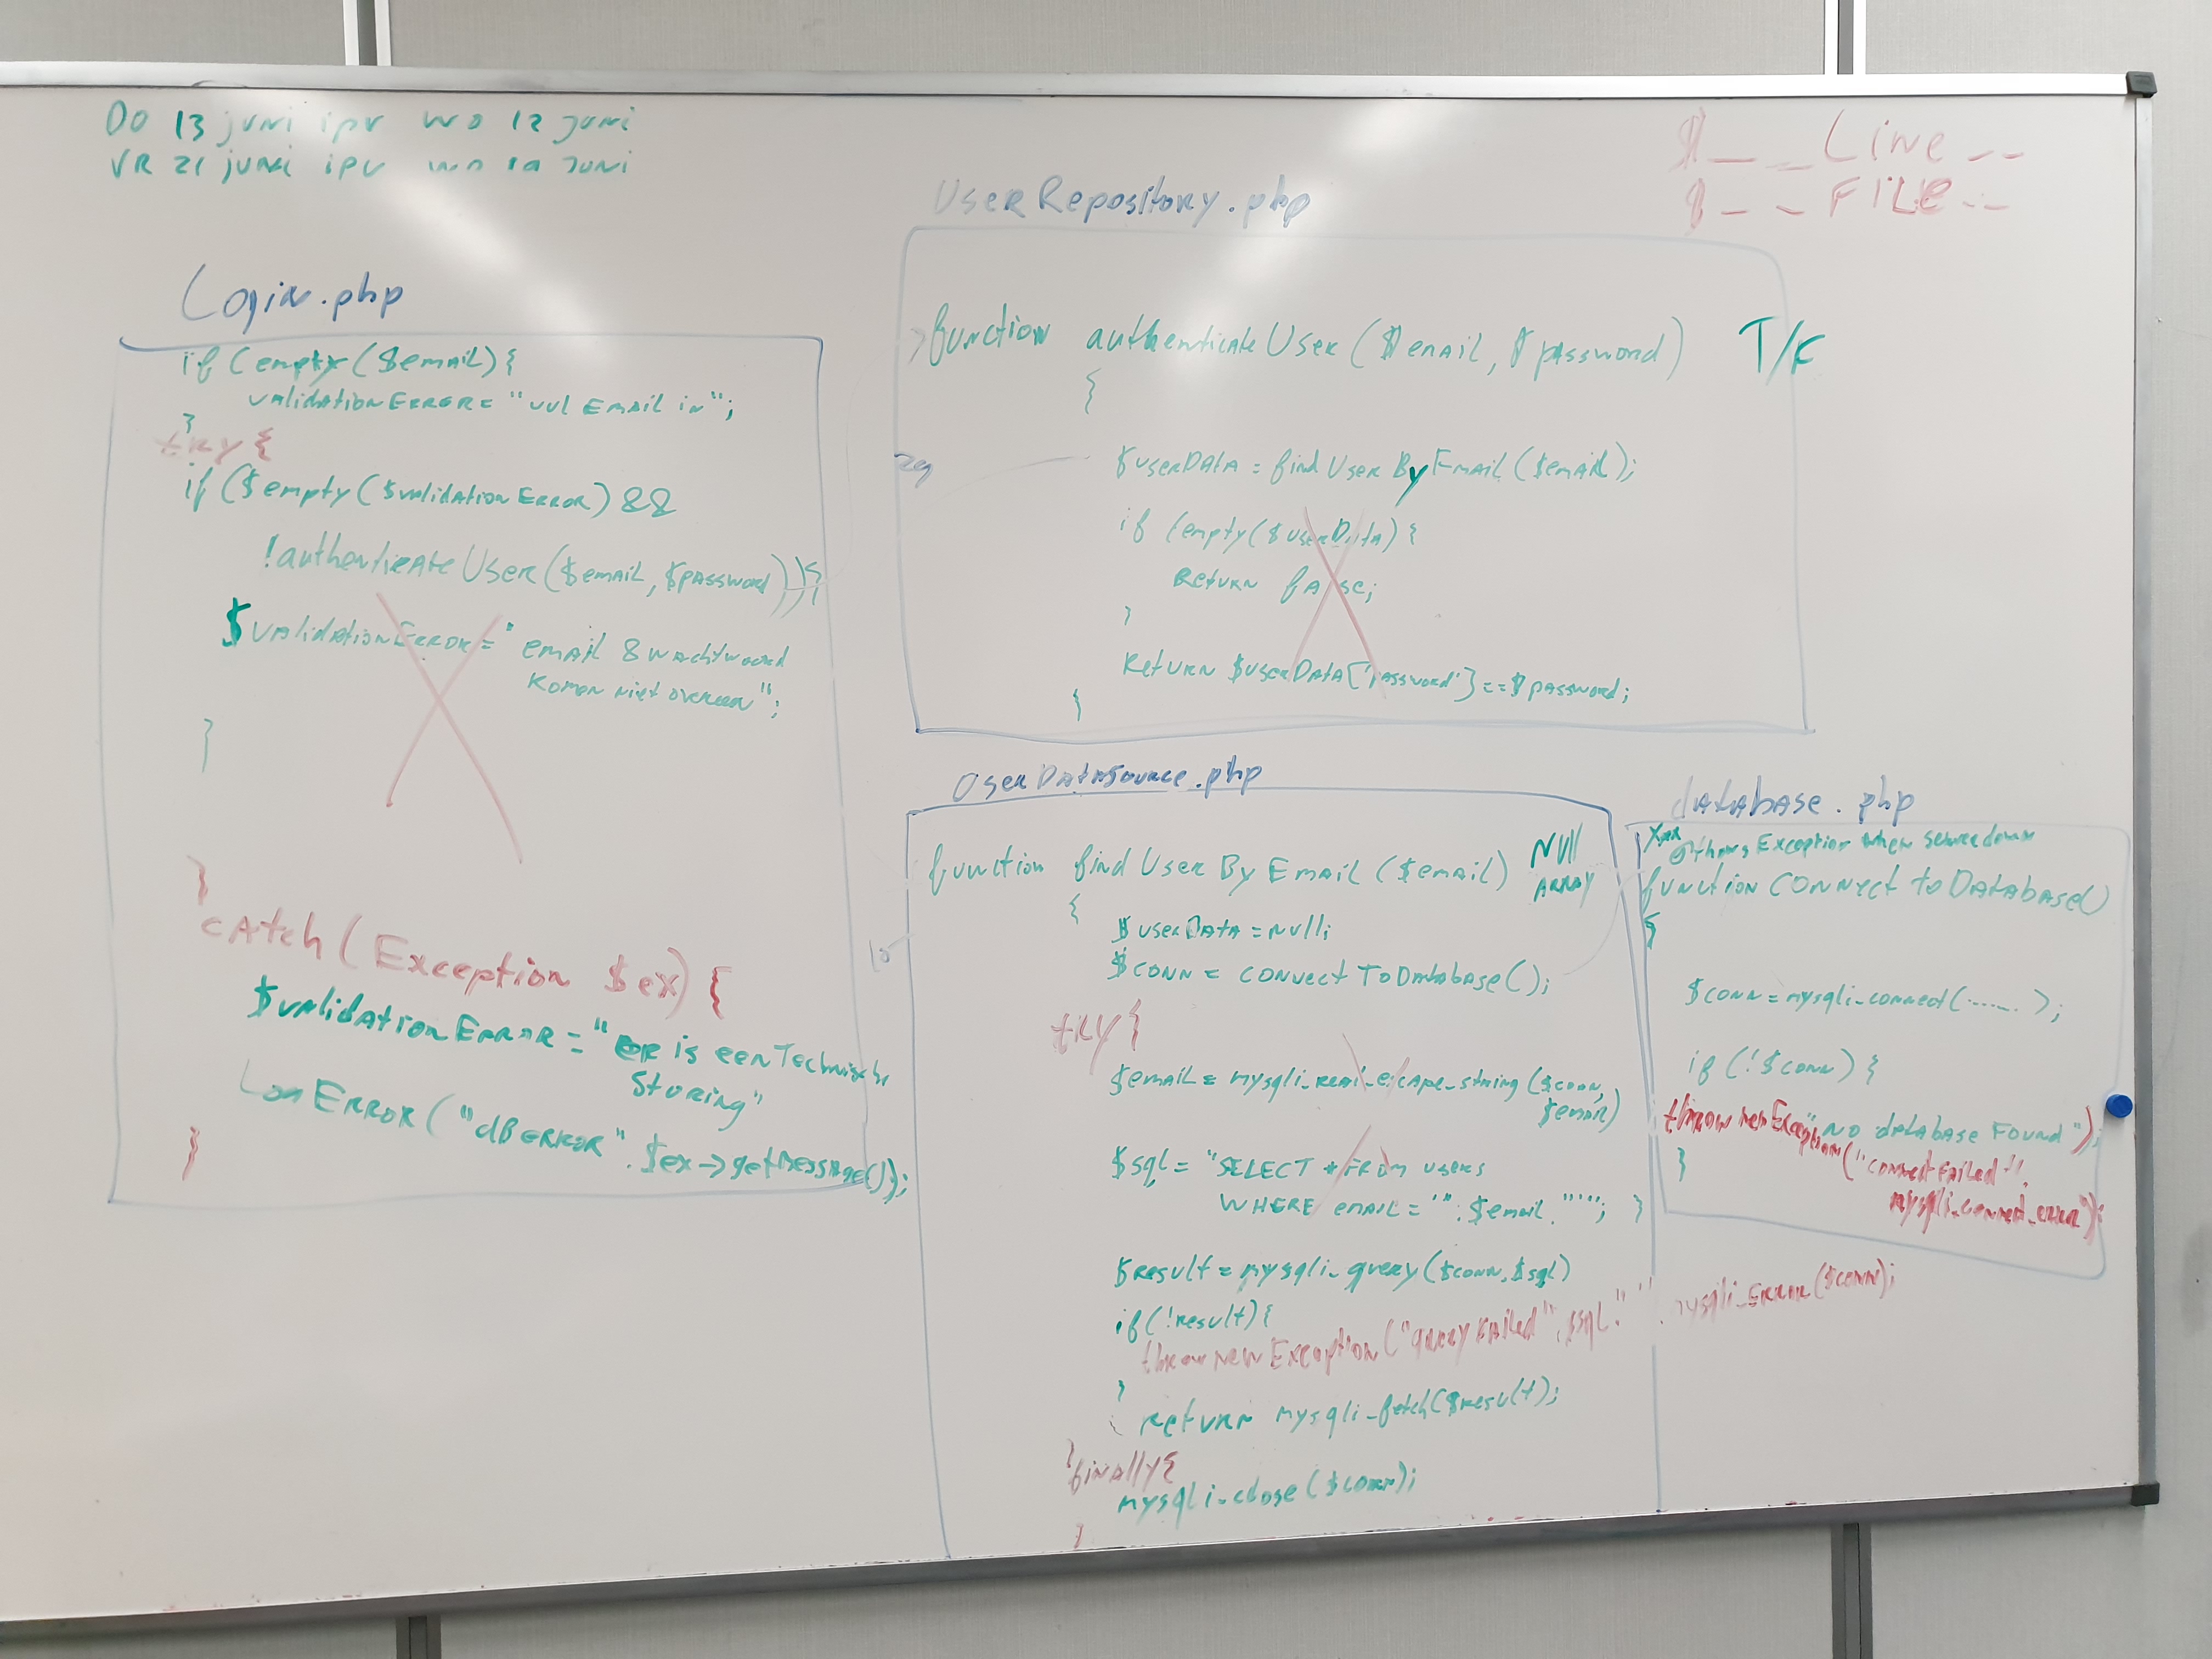 DO 13 juni ipv wo 12 juni
VR 21 juni ipv wo 19 juni
$__ Line --
$-- FILE --
Login.php
if (empty($email){
validationError= "vul Email in";
}
try{
if ($empty($validationError) &&
!authenticateUser($email, $password)){
$validationError= "email & wachtwoord
komen niet overeen";
}
}
catch (Exception $ex) {
$validationError = "er is een Technische
Storing"
LogError("dB error". $ex->getMessage());
}
UserRepository.php
function authenticateUser($email, $password) T/F
{
29
$userData = findUserByEmail($email);
if (empty($userData) {
Return false;
}
Return $userData['password']==$password;
}
UserDatasource.php
function findUserByEmail($email) Null
ARRAY
{
10
$userData = null;
$conn = connectToDatabase();
try{
$email = mysqli_real_escape_string($conn,
$email)
$sql= "SELECT * FROM users
WHERE email = '".$email."'"; }
$result = mysqli_query($conn,$sql)
if(!result){
throw new Exception("query failed".$sql." ". mysqli_error($conn);
}
return mysqli_fetch($result);
}finally{
mysqli_close($conn);
}
database.php
throws Exception when server down
function connect to Database()
{
$conn = mysqli_connect(......);
if (!$conn) {
throw new Exception "no database found");
("connect failed".
mysqli_connect_error");
}